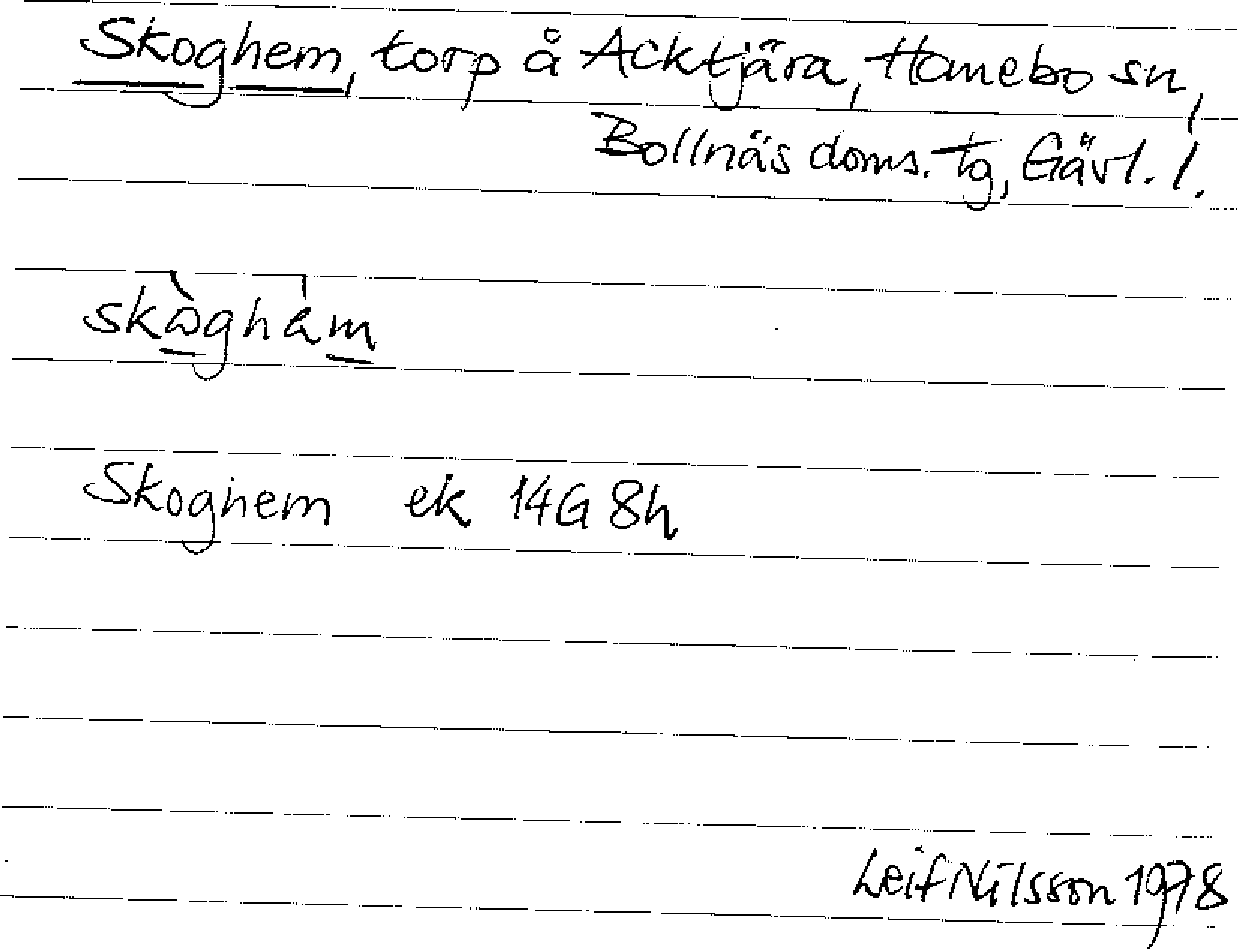 Skoghem, torp å Acktjära, Hanebo sn,
Bollnäs doms. tg, Gävl. l.
Skoghem ek 14G 8h
Leif Nilsson 1978